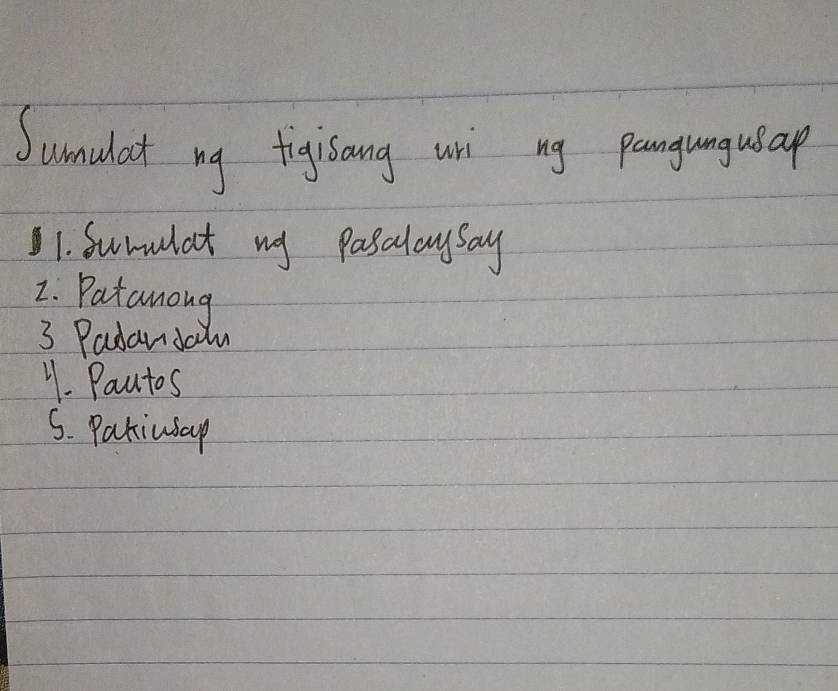 Sumulat ng tigisang uri ng pangungusap
1. Sumulat ng Pasalaysay
2. Patanong
3 Padamdam
4. Pautos
5. Pakiusap